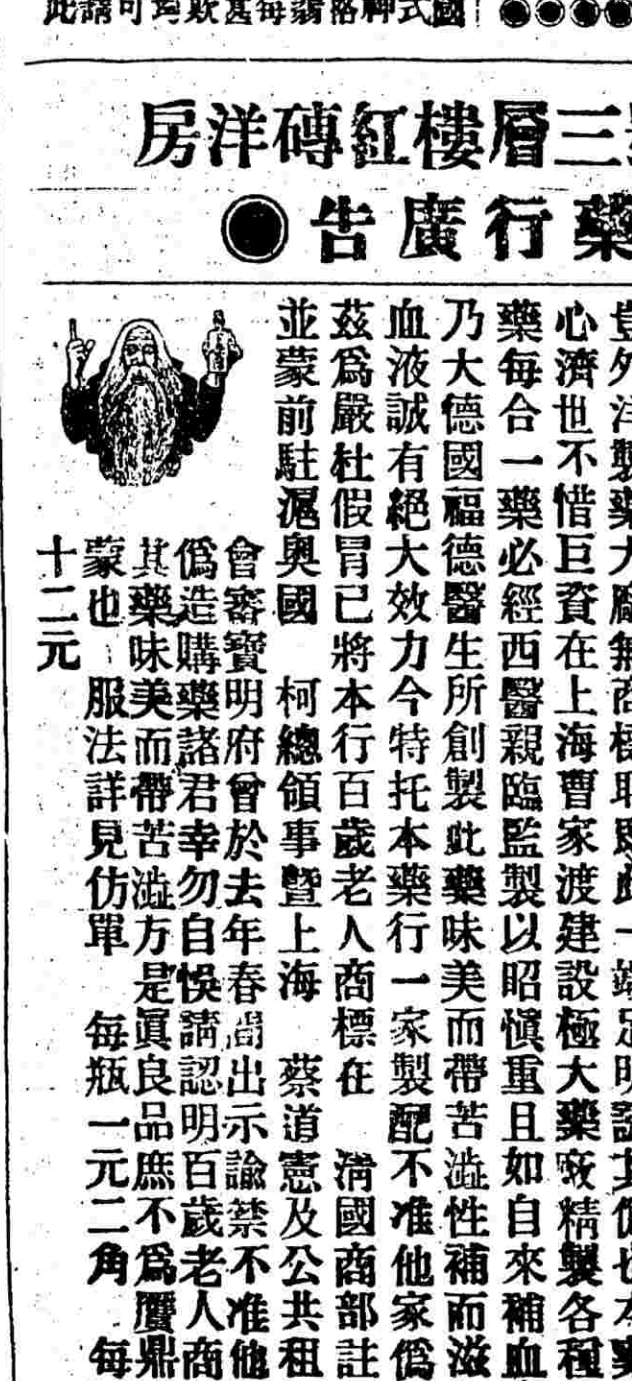 三層樓紅磚洋房
藥行廣告
心濟世不惜巨資在上海曹家渡建設極大藥廠精製各種
藥每合一藥必經西醫親臨監製以昭愼重且如自來補血
乃大德國福德醫生所創製此藥味美而帶苦澁性補而滋
血液誠有絕大效力今特托本藥行一家製配不准他家僞
茲爲嚴杜假冒已將本行百歲老人商標在 淸國商部註
並蒙前駐滬奧國 柯總領事暨上海 蔡道憲及公共租
會審寶明府曾於去年春出示諭禁不准他
僞造購藥諸君幸勿自悞請認明百歲老人商
其藥味美而帶苦澁方是眞良品庶不爲贋鼎
蒙也 服法詳見仿單 每瓶一元二角 每
十二元